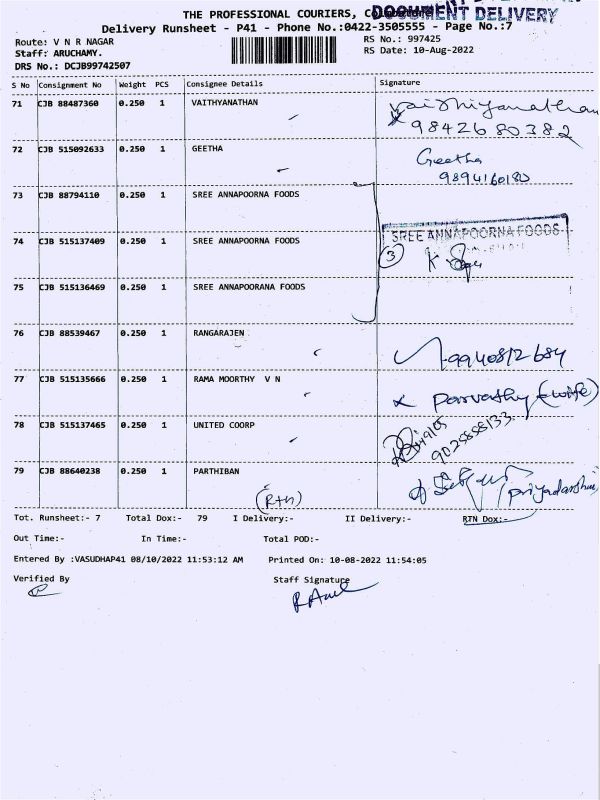 THE PROFESSIONAL COURIERS,
DOCUMENT DELIVERY
Delivery Runsheet - P41 - Phone No.:0422-3505555 - Page No.:7
Route: V N R NAGAR
RS No.: 997425
Staff: ARUCHAMY.
RS Date: 10-Aug-2022
DRS No.: DCJB99742507
S No Consignment No Weight PCS Consignee Details Signature
71 CJB 88487360 0.250 1 VAITHYANATHAN Vaidhiyanathan
9842680382
72 CJB 515092633 0.250 1 GEETHA Geetha
9894160180
73 CJB 88794110 0.250 1 SREE ANNAPOORNA FOODS
SREE ANNAPOORNA FOODS
74 CJB 515137409 0.250 1 SREE ANNAPOORNA FOODS 3
75 CJB 515136469 0.250 1 SREE ANNAPOORANA FOODS
76 CJB 88539467 0.250 1 RANGARAJEN. 9940812684
77 CJB 515135666 0.250 1 RAMA MOORTHY V N x Parvathy (wife)
78 CJB 515137465 0.250 1 UNITED COORP
9025858133
79 CJB 88640238 0.250 1 PARTHIBAN
(Rtn)
Tot. Runsheet:- 7 Total Dox:- 79 I Delivery:- II Delivery:- RTN Dox:-
Out Time:- In Time:- Total POD:-
Entered By :VASUDHAP41 08/10/2022 11:53:12 AM Printed On: 10-08-2022 11:54:05
Verified By Staff Signature